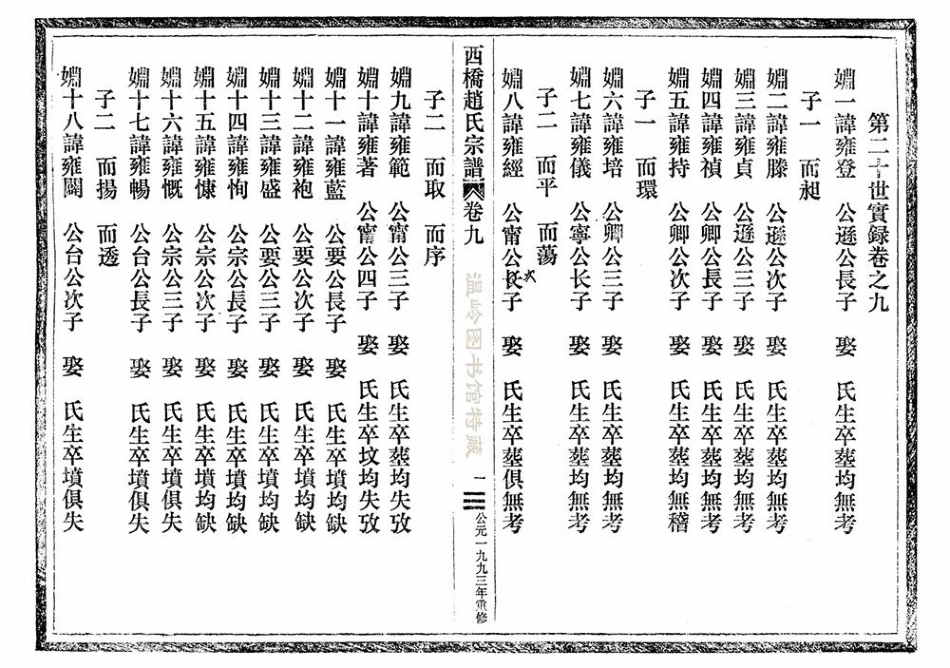 第二十世實録卷之九
嫺一諱雍登 公遜公長子 娶 氏生卒塟均無考
子一 而昶
嫺二諱雍滕 公遜公次子 娶 氏生卒塟均無考
嫺三諱雍貞 公遜公三子 娶 氏生卒塟均無考
嫺四諱雍禎 公卿公長子 娶 氏生卒塟均無考
嫺五諱雍持 公卿公次子 娶 氏生卒塟均無稽
子一 而環
嫺六諱雍培 公卿公三子 娶 氏生卒塟均無考
嫺七諱雍儀 公寧公长子 娶 氏生卒塟均無考
子二 而平 而蕩
嫺八諱雍經 公甯公长子 娶 氏生卒塟俱無考
西橋趙氏宗譜 卷九
一
公元一九九三年重修
温岭图书馆特藏
嫺九諱雍範 公甯公三子 娶 氏生卒塟均失攷
子二 而取 而序
嫺十諱雍著 公甯公四子 娶 氏生卒坟均失攷
嫺十一諱雍藍 公要公長子 娶 氏生卒墳均缺
嫺十二諱雍袍 公要公次子 娶 氏生卒墳均缺
嫺十三諱雍盛 公要公三子 娶 氏生卒墳均缺
嫺十四諱雍恂 公宗公長子 娶 氏生卒墳均缺
嫺十五諱雍慷 公宗公次子 娶 氏生卒墳均缺
嫺十六諱雍慨 公宗公三子 娶 氏生卒墳俱失
嫺十七諱雍暢 公台公長子 娶 氏生卒墳俱失
子二 而揚 而透
嫺十八諱雍闓 公台公次子 娶 氏生卒墳俱失